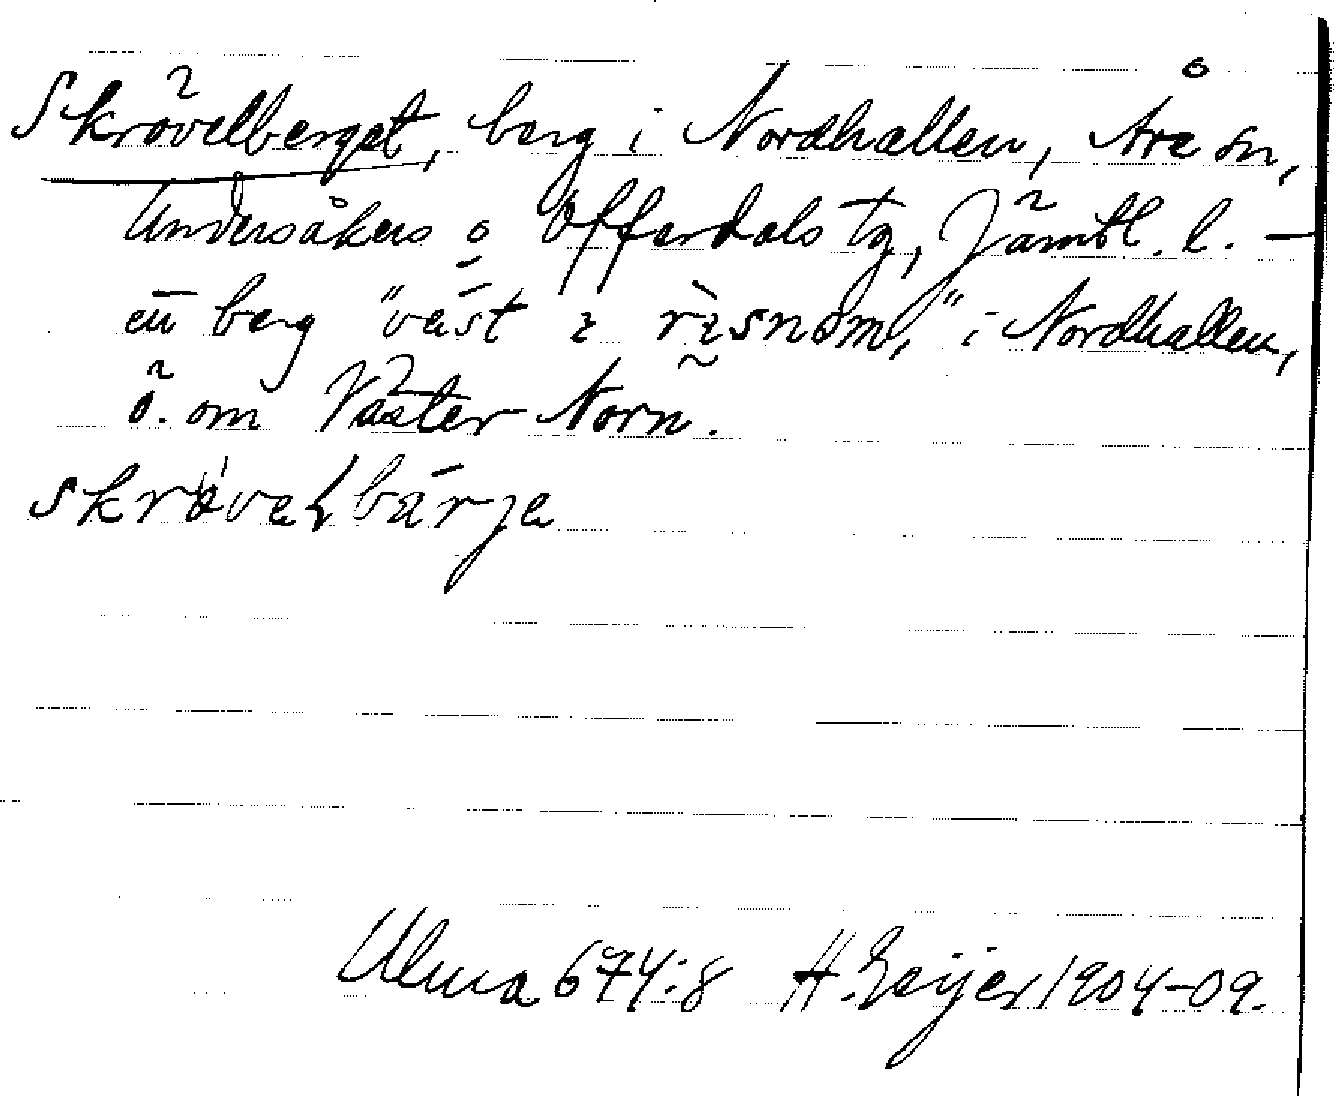 Skrövelberget, berg i Nordhallen, Åre sn,
Undersåkers o Offerdals tg, Jämtl. l. –
ett berg "väst i risnom," i Nordhallen,
ö. om Väster Norn.
skrøvelbärje
Ulma 674:8 H. Geijer 1904-09.